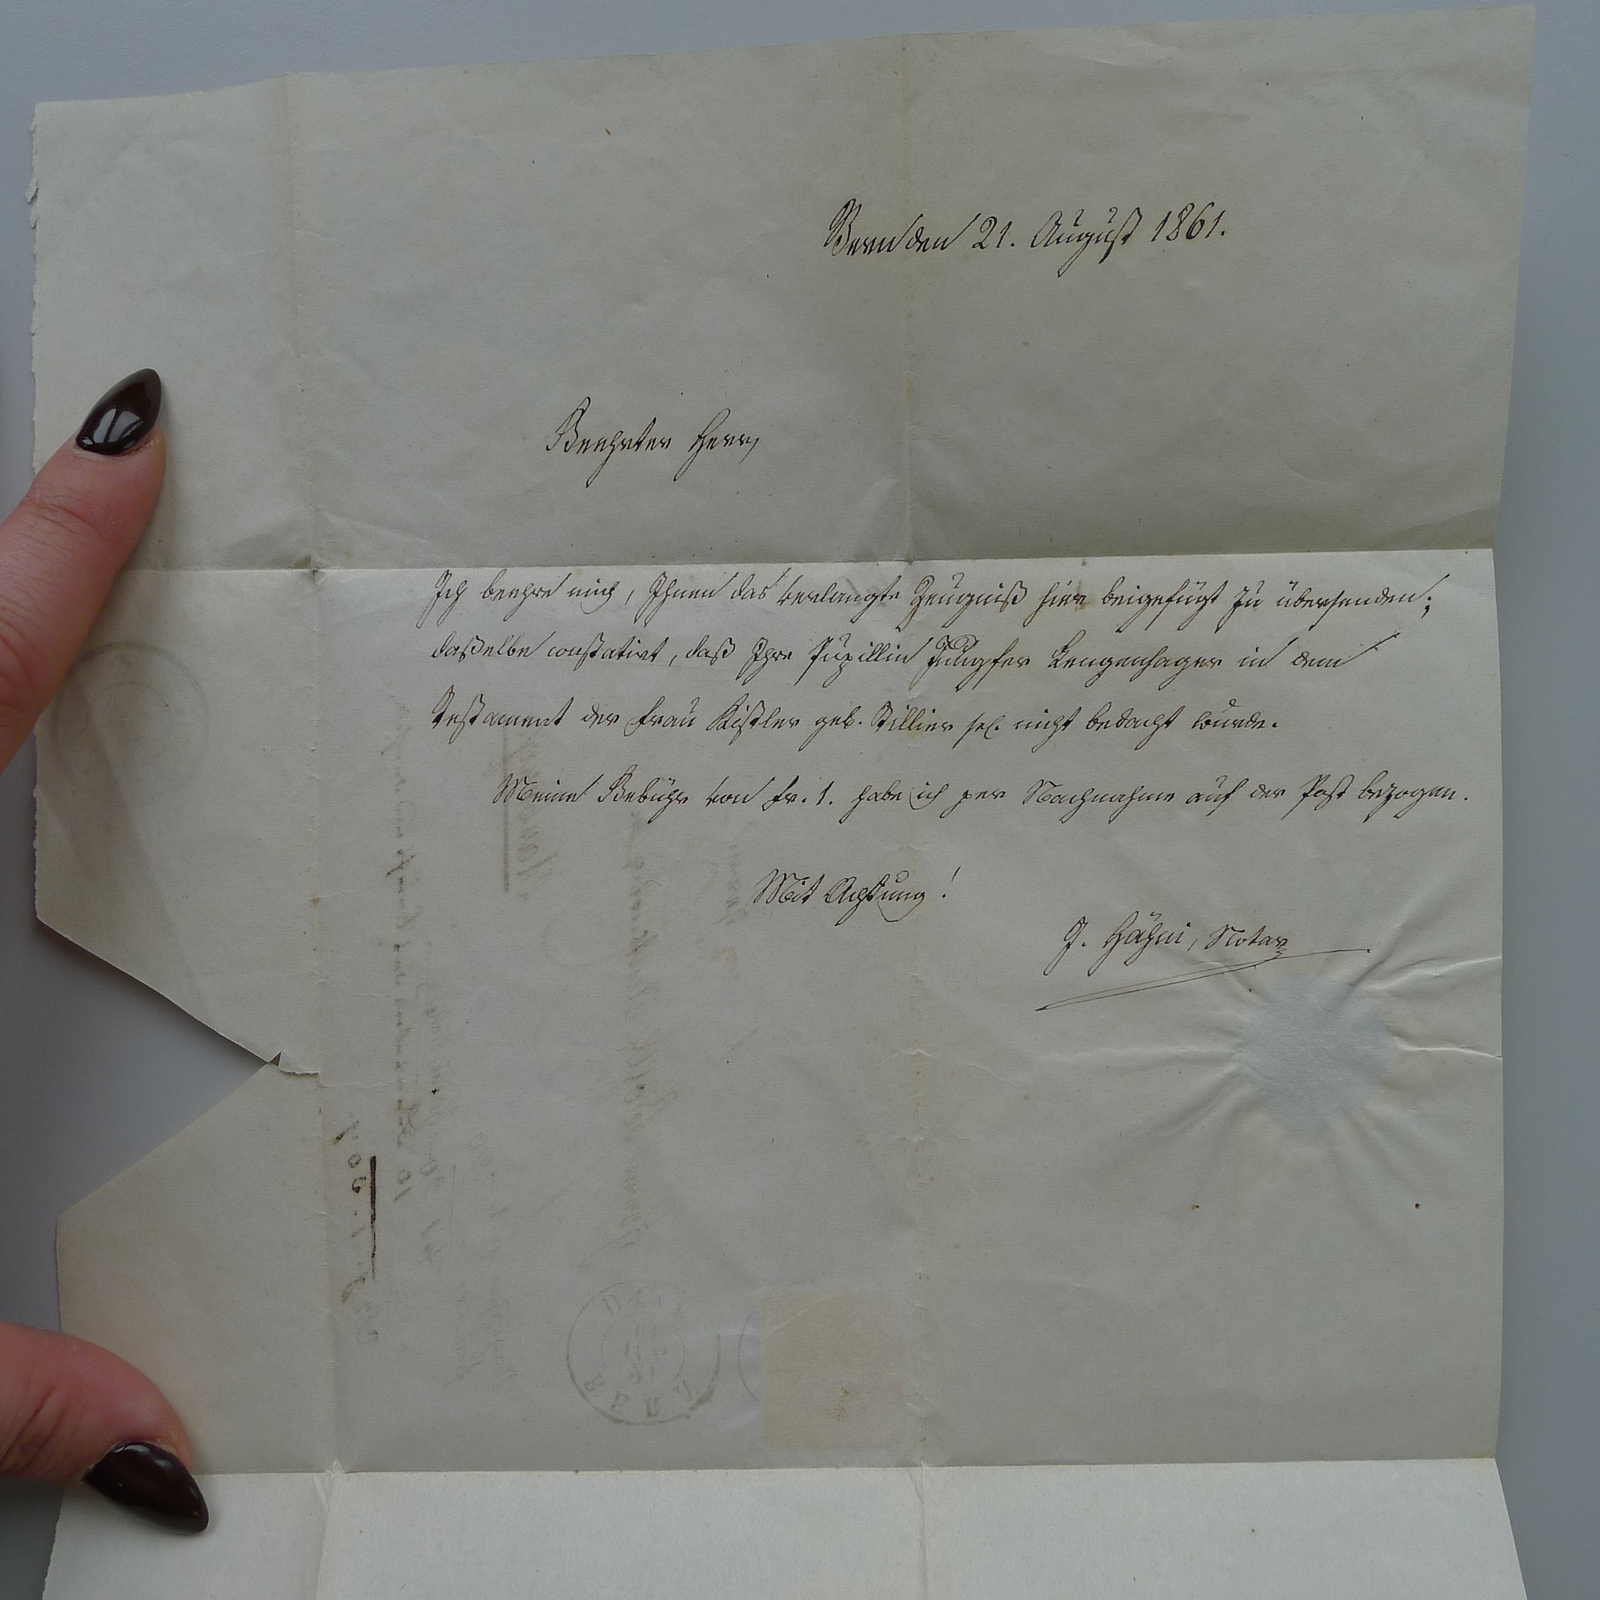 Bern den 21. August 1861.
Geehrter Herr,
Ich beehre mich, Ihnen das verlangte Zeugniß hier beigefügt zu übersenden;
daßelbe constatirt, daß Ihre Pupillin Jungfer Leugenhager in dem
Testament der Frau Kistler geb. Tillier sel. nicht bedacht wurde.
Meine Gebühr von fr. 1. habe ich per Nachnahme auf der Post bezogen.
Mit Achtung!
J. Hähni, Notar
BERN